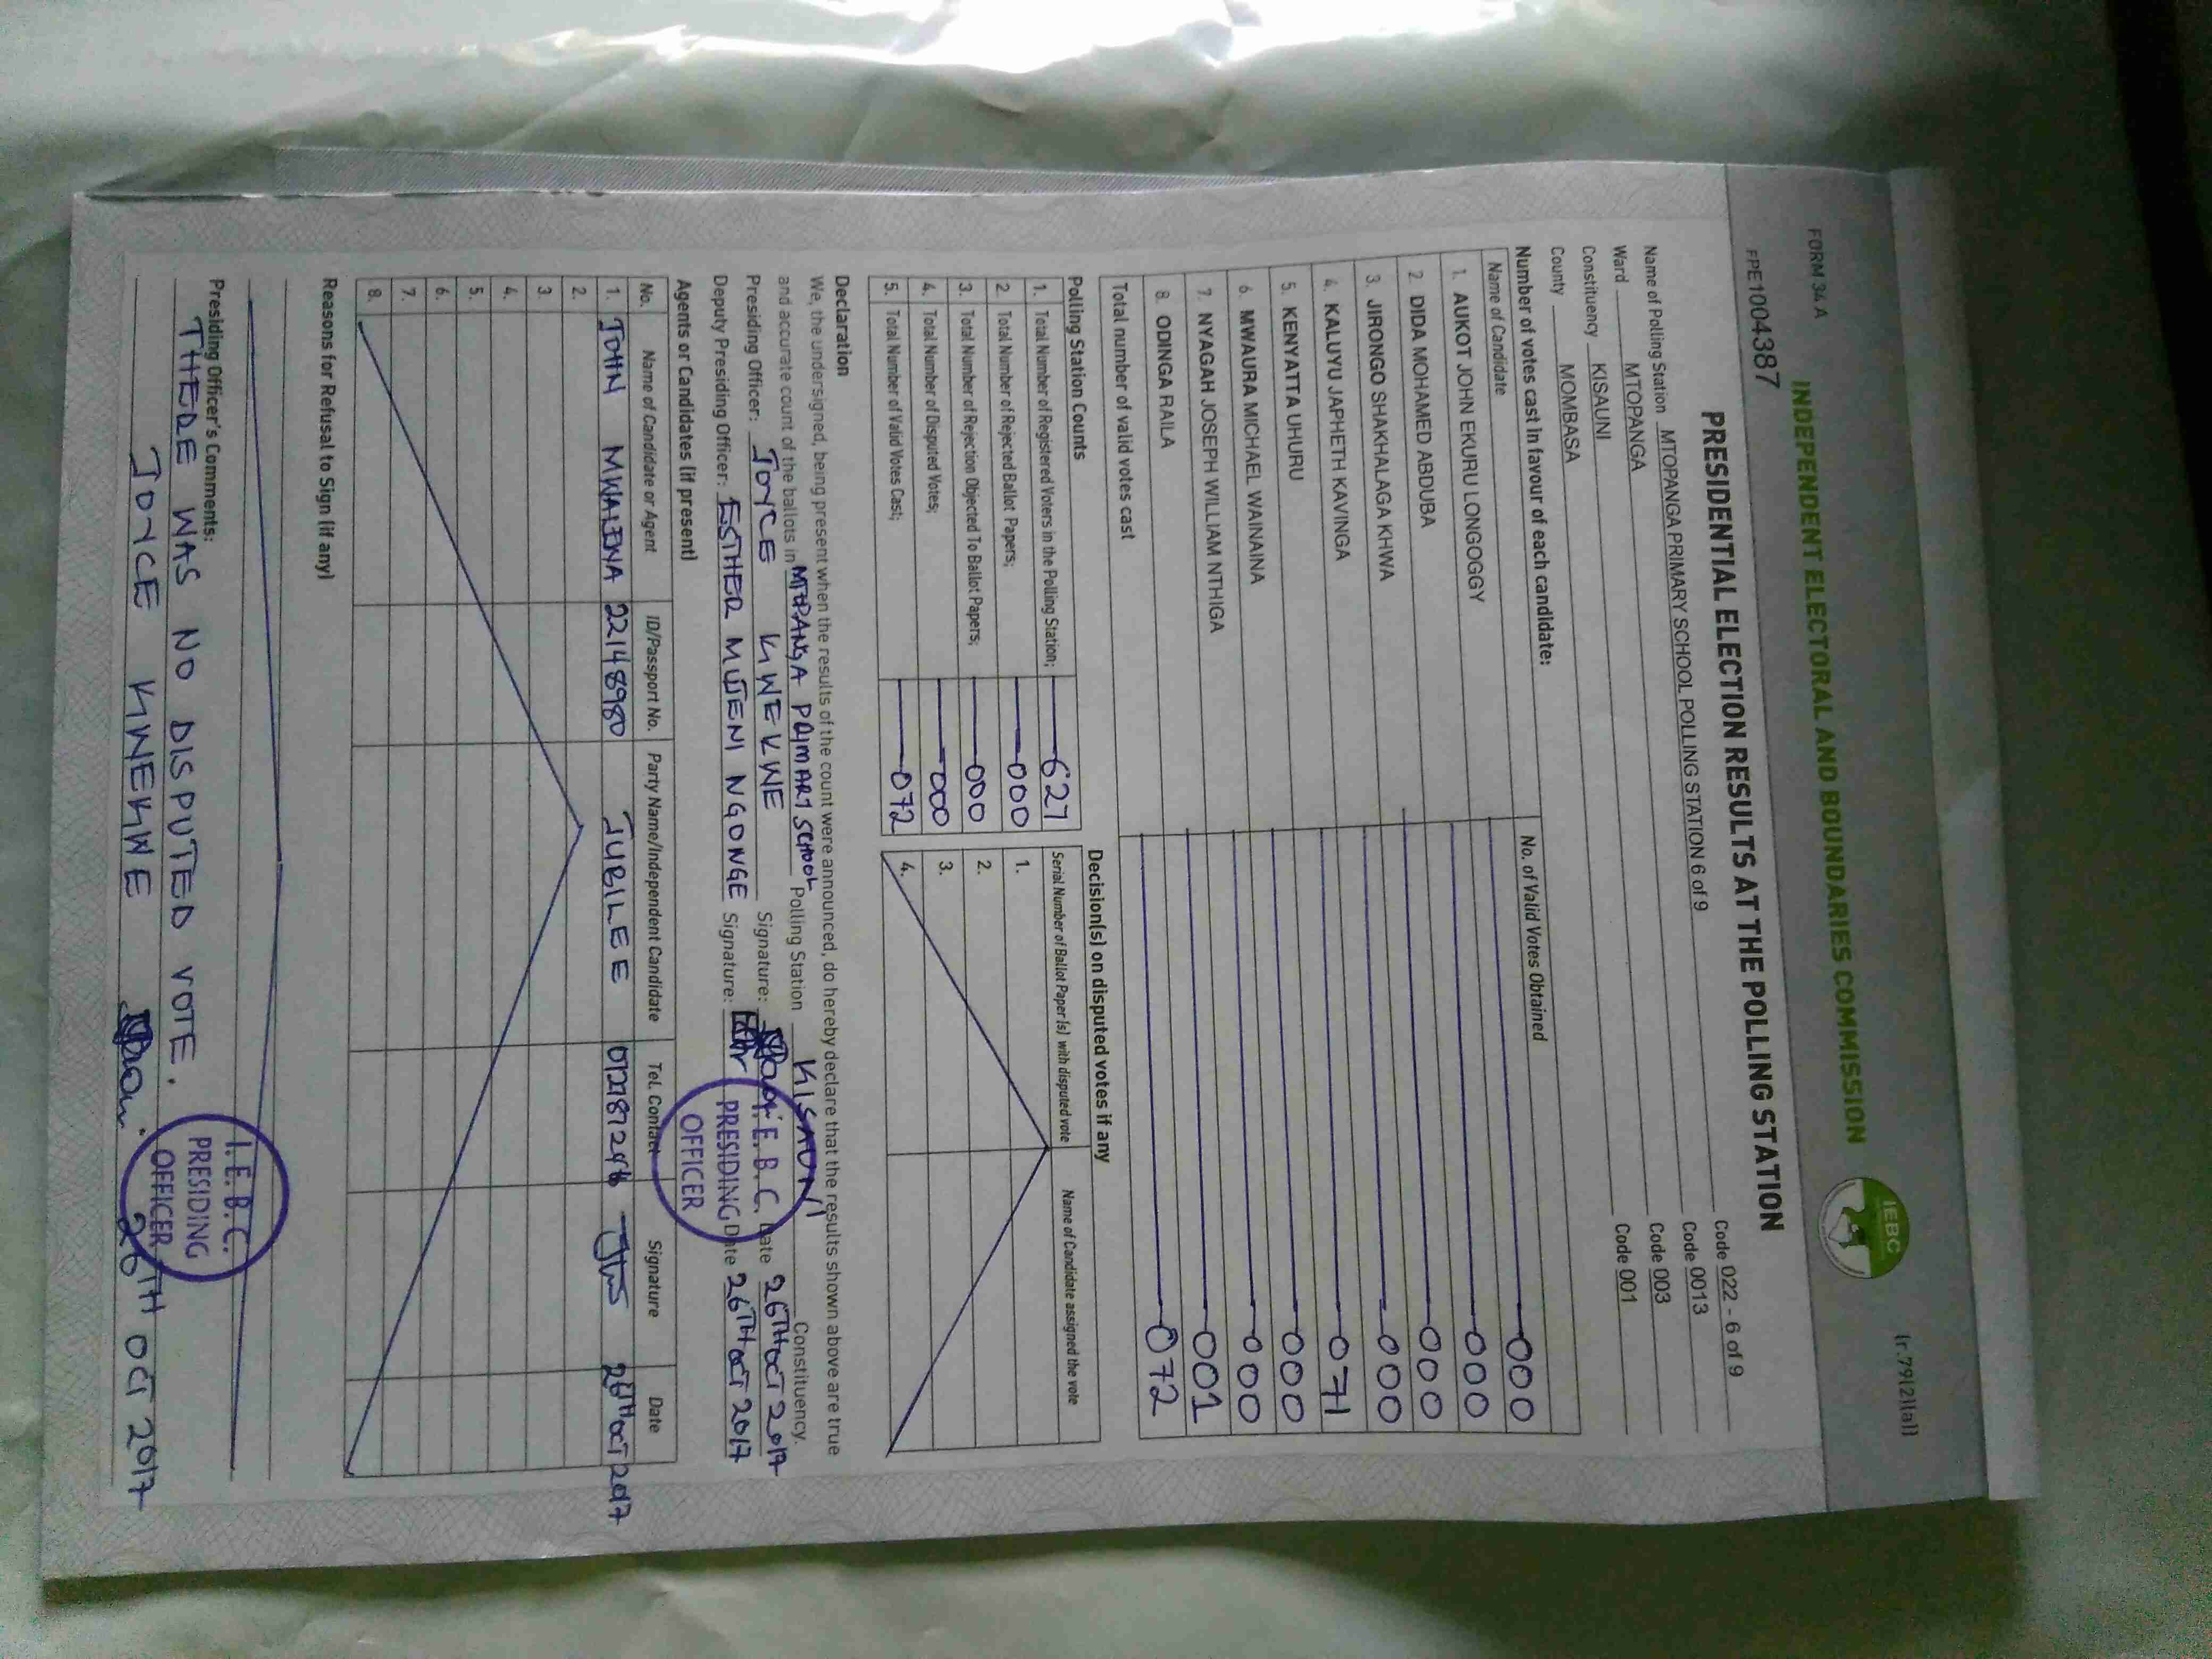 FORM 34 A
(r.79(2)(a))
INDEPENDENT ELECTORAL AND BOUNDARIES COMMISSION
IEBC
FPE1004387
PRESIDENTIAL ELECTION RESULTS AT THE POLLING STATION
Name of Polling Station MTOPANGA PRIMARY SCHOOL POLLING STATION 6 of 9 Code 022 - 6 of 9
Ward MTOPANGA Code 0013
Constituency KISAUNI Code 003
County MOMBASA Code 001
Number of votes cast in favour of each candidate:
Name of Candidate No. of Valid Votes Obtained
1. AUKOT JOHN EKURU LONGOGGY 000
2. DIDA MOHAMED ABDUBA 000
3. JIRONGO SHAKHALAGA KHWA 000
4. KALUYU JAPHETH KAVINGA 000
5. KENYATTA UHURU 071
6. MWAURA MICHAEL WAINAINA 000
7. NYAGAH JOSEPH WILLIAM NTHIGA 000
8. ODINGA RAILA 001
Total number of valid votes cast 072
Polling Station Counts
1. Total Number of Registered Voters in the Polling Station; 627
2. Total Number of Rejected Ballot Papers; 000
3. Total Number of Rejection Objected To Ballot Papers; 000
4. Total Number of Disputed Votes; 000
5. Total Number of Valid Votes Cast; 072
Decision(s) on disputed votes if any
Serial Number of Ballot Paper (s) with disputed vote Name of Candidate assigned the vote
1.
2.
3.
4.
Declaration
We, the undersigned, being present when the results of the count were announced, do hereby declare that the results shown above are true
and accurate count of the ballots in MTOPANGA PRIMARY SCHOOL Polling Station KISAUNI Constituency.
Presiding Officer: JOYCE KWEKWE Signature: Date 26TH OCT 2017
Deputy Presiding Officer: ESTHER MUENI NGONGE Signature: Date 26TH OCT 2017
I.E.B.C.
PRESIDING
OFFICER
Agents or Candidates (if present)
No. Name of Candidate or Agent ID/Passport No. Party Name/Independent Candidate Tel. Contact Signature Date
1. JOHN MWALIWA 22148980 JUBILEE 26TH OCT 2017
2.
3.
4.
5.
6.
7.
8.
Reasons for Refusal to Sign (if any)
Presiding Officer's Comments:
THERE WAS NO DISPUTED VOTE.
JOYCE KWEKWE 26TH OCT 2017
I.E.B.C.
PRESIDING
OFFICER